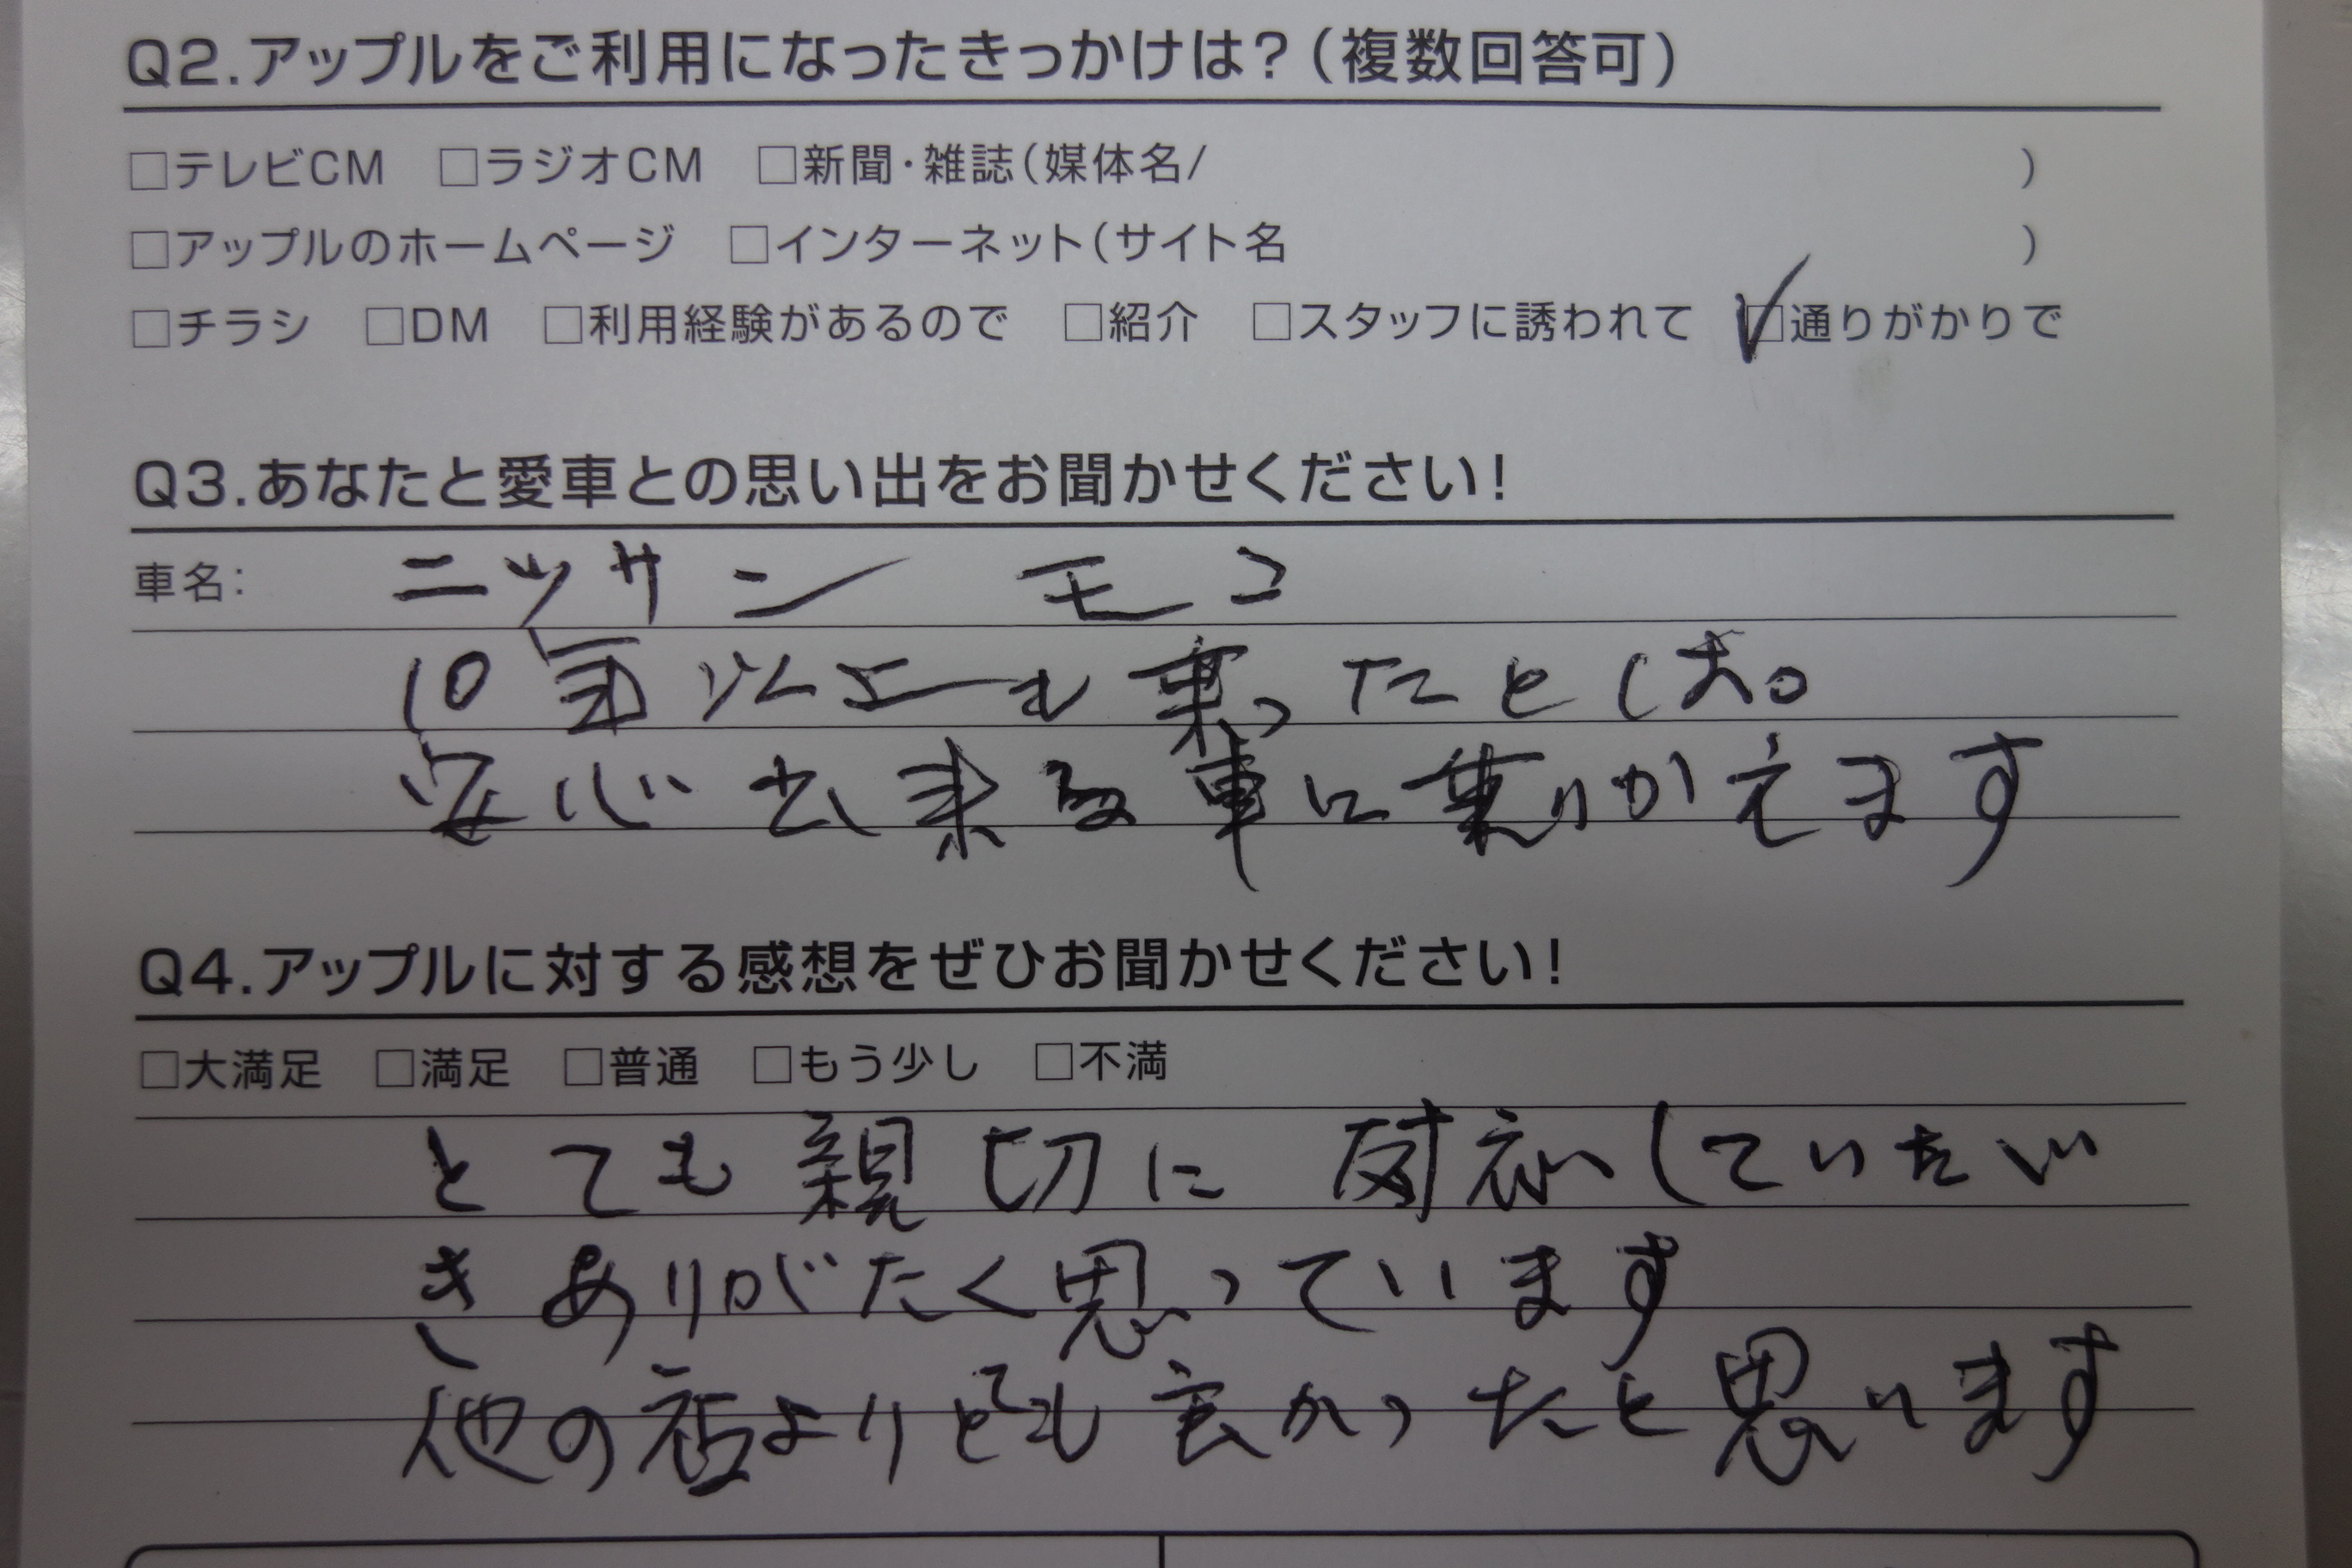 Q2.アップルをご利用になったきっかけは?(複数回答可)
□テレビCM □ラジオCM □新聞・雑誌(媒体名/ )
□アップルのホームページ □インターネット(サイト名 )
□チラシ □DM □利用経験があるので □紹介 □スタッフに誘われて ☑通りがかりで
Q3.あなたと愛車との思い出をお聞かせください!
車名: ニッサン モコ
10年以上も乗ったとしお。
安心出来る車に乗りかえます
Q4.アップルに対する感想をぜひお聞かせください!
□大満足 □満足 □普通 □もう少し □不満
とても親切に対応していただい
きありがたく思っています
他の店よりとても良かったと思います